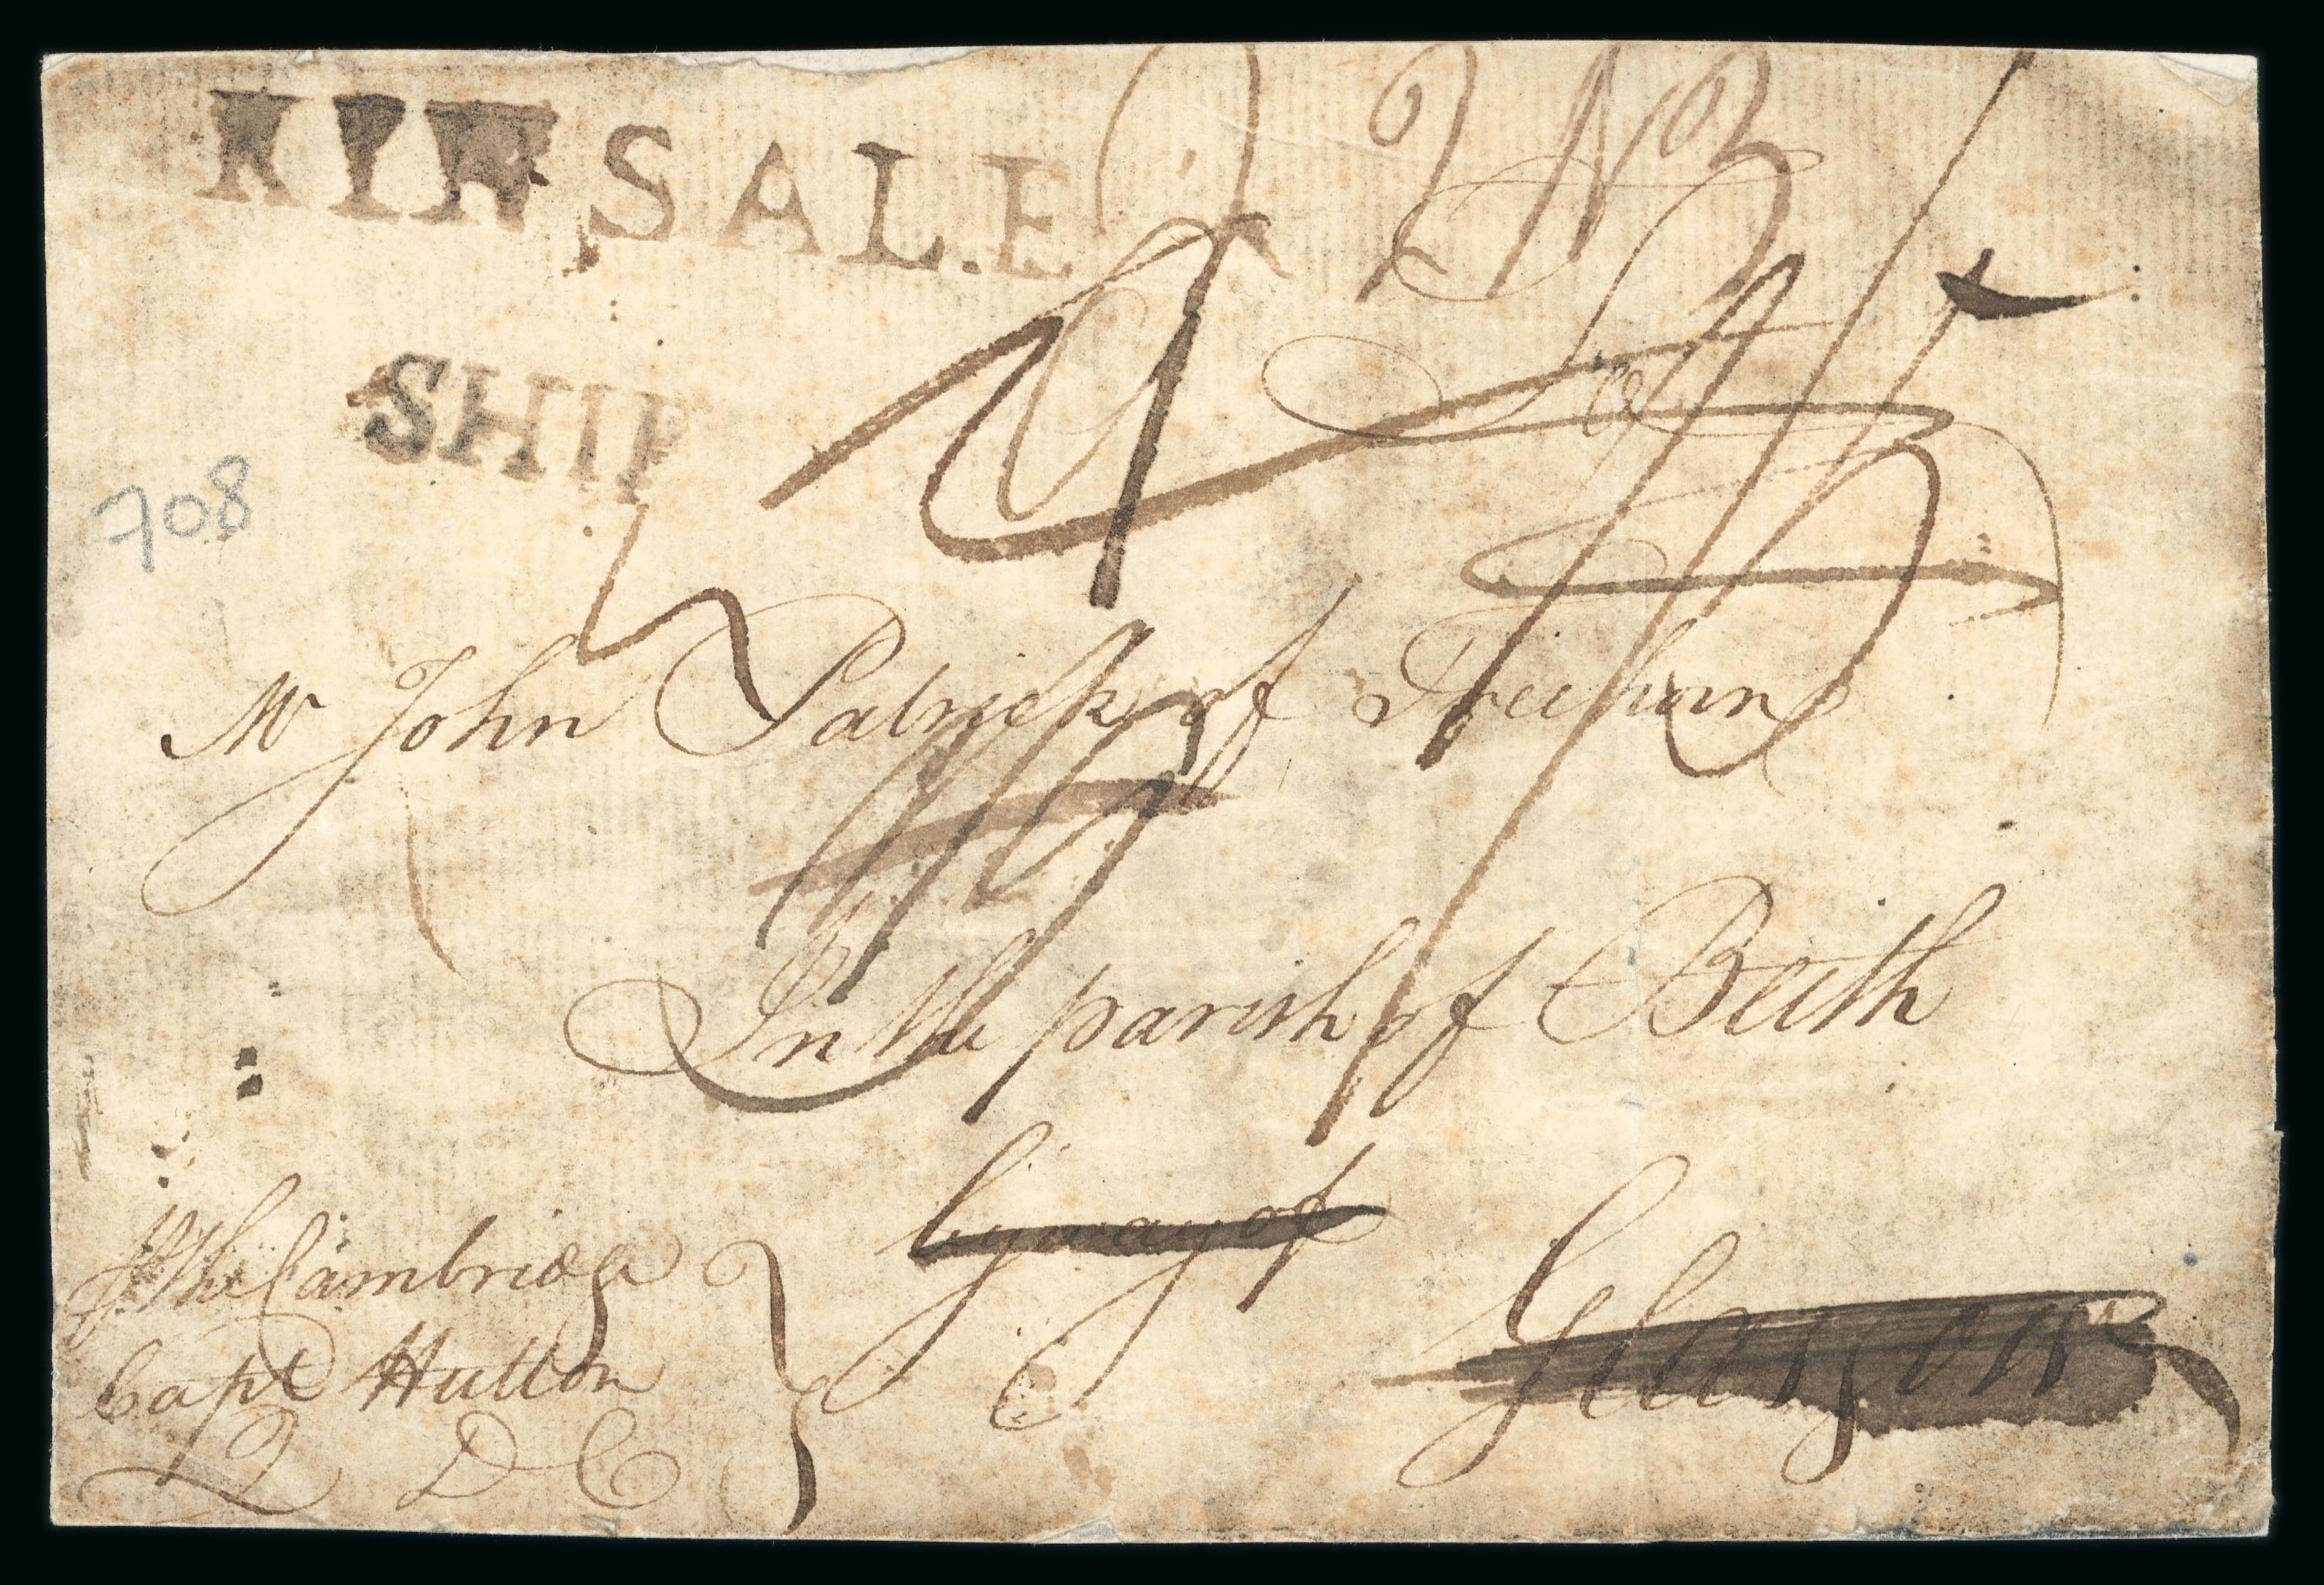 KINSALE
SHIP
To
708
Mr John Patrick of Treehorn
In the parish of Beith
by way of
Glasgow
P the Cambridge
Capt Hutton
Q D C